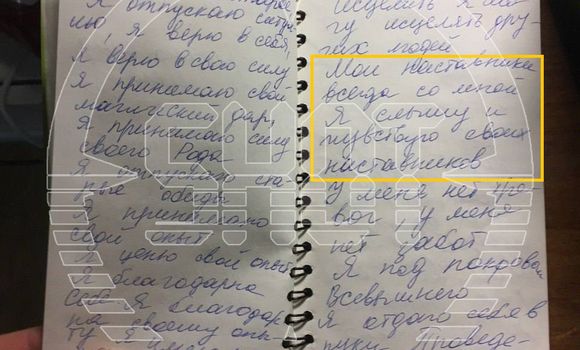 Я отпускаю
лю, Я верю в себя,
Я верю в свою силу
Я принимаю свой
магический дар,
Я принимаю силу
своего Рода
Я отпускаю ста-
рые обиды
Я принимаю
свой опыт
Я ценю свой опыт
Я благодарна
себе. Я благодар-
на своему опы-
ту Я
исцелять дру-
гих людей
Мои наставники
всегда со мной
Я слышу и
чувствую своих
наставников
у меня нет тре-
вог, у меня
нет забот
Я под покровом
Всевышнего
Я отдаю себя в
руки Проведе-